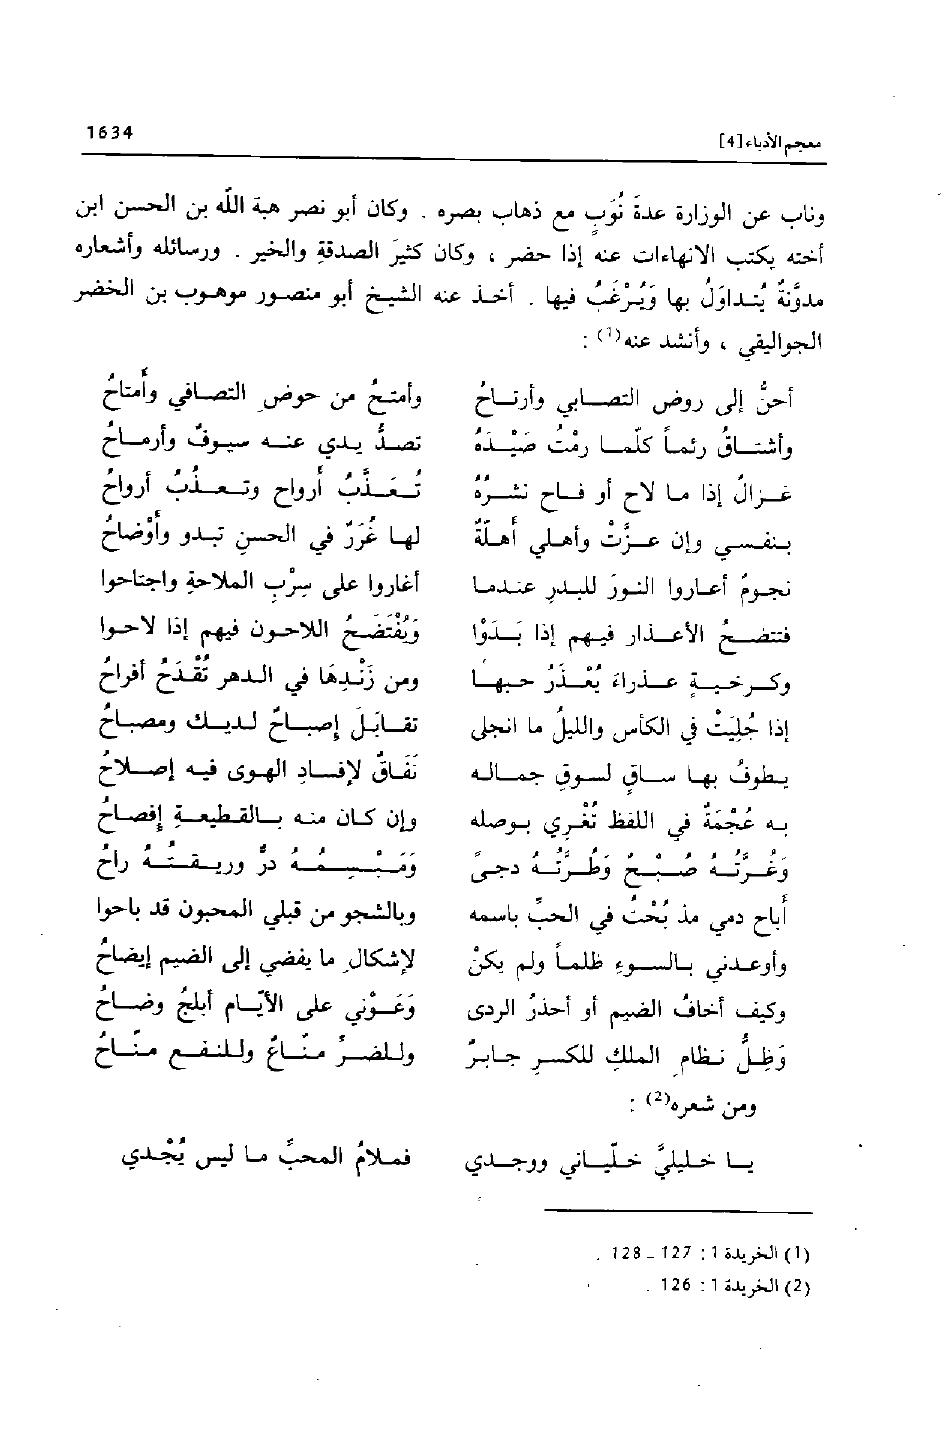 معجم الأدباء [4] 1634
وناب عن الوزارة عدة نُوَبٍ مع ذهاب بصره . وكان أبو نصر هبة الله بن الحسن ابن
أخته يكتب الانهاءات عنه إذا حضر ، وكان كثيرَ الصدقةِ والخير . ورسائله وأشعاره
مدوَّنة يُتداوَلُ بها وَيُرْغَبُ فيها . أخذ عنه الشيخ أبو منصور موهوب بن الخضر
الجواليقي ، وأنشد عنه(1) :
أحنُّ إلى روض التصابي وأرتاحُ وأمتحُ من حوضِ التصافي وأمتاحُ
وأشتاقُ رئماً كلّما رمْتُ صَيْدَهُ تصدُّ يدي عنه سيوفٌ وأرماحُ
غزالٌ إذا ما لاح أو فاح نشرُهُ تُعَذَّبُ أرواح وتعذبُ أرواحُ
بنفسي وإن عزَّتْ وأهلي أهلّةٌ لها غُرَرٌ في الحسن تبدو وأوْضاحُ
نجومٌ أعاروا النورَ للبدرِ عندما أغاروا على سِرْبِ الملاحةِ واجتاحوا
فتتضح الأعذار فيهم إذا بَدَوْا وَيُفْتَضَحُ اللاحون فيهم إذا لاحوا
وكرخيةٍ عذراءَ يُعْذَرُ حبها ومن زَنْدِهَا في الدهر تُقْدَحُ أفراحُ
إذا جُلِيَتْ في الكأس والليلُ ما انجلى تقابَلَ إصباحٌ لديك ومصباحُ
يطوفُ بها ساقٍ لسوقِ جماله نَفَاقٌ لإفساد الهوى فيه إصلاحُ
به عُجْمَةٌ في اللفظ تُغْري بوصله وإن كان منه بالقطيعةِ إفصاحُ
وَغُرَّتُهُ صُبْحٌ وَطُرَّتُهُ دجىً وَمَبْسِمُهُ درٌّ وريقتُهُ راحُ
أباح دمي مذ بُحْتُ في الحبّ باسمه وبالشجو من قبلي المحبون قد باحوا
وأوعدني بالسوء ظلماً ولم يكنْ لإشكالِ ما يفضي إلى الضيم إيضاحُ
وكيف أخافُ الضيم أو أحذرُ الردى وَعَوْني على الأيّام أبلجُ وضاحُ
وَظِلُّ نظامِ الملكِ للكسرِ جابرٌ وللضرِّ منّاعٌ وللنفع منّاحُ
ومن شعره(2) :
يا خليليَّ خلّياني ووجدي فملامُ المحبّ ما ليس يُجْدي
(1) الخريدة 1 : 127 - 128 .
(2) الخريدة 1 : 126 .